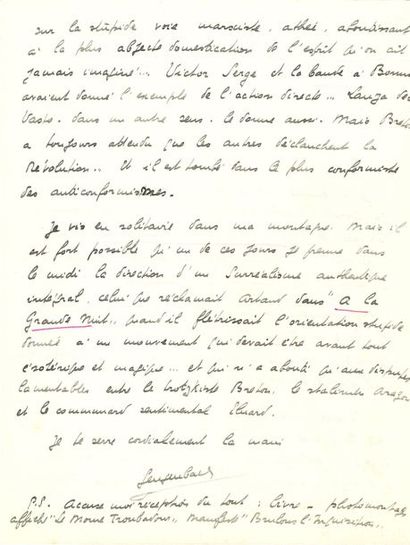 sur la stupide voie marxiste, athée, aboutissant
à la plus abjecte domestication de l'esprit qu'on ait
jamais imaginé!... Victor Serge et la bande à Bonnot
avaient donné l'exemple de l'action directe... Lanza del
Vasto, dans un autre sens, le donne aussi. Mais Breton
a toujours attendu que les autres déclanchent la
Révolution.. Et il est tombé dans le plus conformiste
des anticonformismes.
Je vis en solitaire dans ma montagne. Mais il
est fort possible qu'un de ces jours je prenne dans
le midi la direction d'un Surréalisme authentique
intégral, celui que réclamait Artaud dans "A la
Grande Nuit,, quand il flétrissait l'orientation stupide
donnée à un mouvement qui devait être avant tout
ésotérique et magique... et qui n'a abouti qu'aux disputes
lamentables entre le trotzkiste Breton, le stalinien Aragon
et le communard sentimental Eluard.
Je te serre cordialement la main
Gengenbach
P.S. Accuse moi réception du tout : livre - photomontage
affiche "Le Mome Troubadour,, Manifeste "Brulons l'Inquisition,,